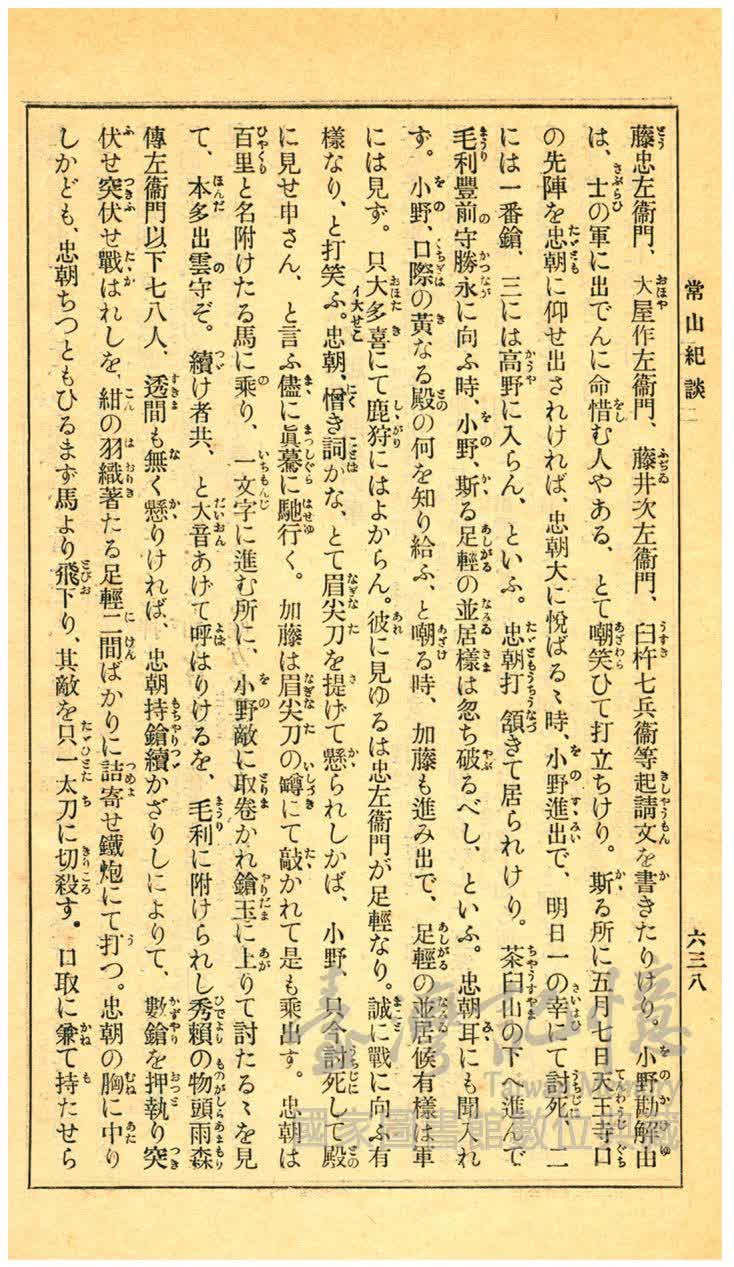 常山紀談 二
六三八
藤忠左衞門、大屋作左衞門、藤井次左衞門、臼杵七兵衞等起請文を書きたりけり。小野勘解由
は、士の軍に出でんに命惜む人やある、とて嘲笑ひて打立ちけり。斯る所に五月七日天王寺口
の先陣を忠朝に仰せ出されければ、忠朝大に悅ばるゝ時、小野進出で、明日一の幸にて討死、二
には一番鎗、三には高野に入らん、といふ。忠朝打頷きて居られけり。茶臼山の下へ進んで
毛利豐前守勝永に向ふ時、小野、斯る足輕の並居樣は忽ち破るべし、といふ。忠朝耳にも聞入れ
ず。小野、口際の黃なる殿の何を知り給ふ、と嘲る時、加藤も進み出で、足輕の並居候有樣は軍
には見ず。只大多喜にて鹿狩にはよからん。彼に見ゆるは忠左衞門が足輕なり。誠に戰に向ふ有
樣なり、と打笑ふ。忠朝、憎き詞かな、とて眉尖刀を提げて懸られしかば、小野、只今討死して殿
に見せ申さん、と言ふ儘に眞驀に馳行く。加藤は眉尖刀の鐏にて敲かれて是も乘出す。忠朝は
百里と名附けたる馬に乘り、一文字に進む所に、小野敵に取卷かれ鎗玉に上りて討たるゝを見
て、本多出雲守ぞ。續け者共、と大音あげて呼はりけるを、毛利に附けられし秀賴の物頭雨森
傳左衞門以下七八人、透間も無く懸りければ、忠朝持鎗續かざりしによりて、數鎗を押執り突
伏せ突伏せ戰はれしを、紺の羽織著たる足輕二間ばかりに詰寄せ鐵炮にて打つ。忠朝の胸に中り
しかども、忠朝ちつともひるまず馬より飛下り、其敵を只一太刀に切殺す。口取に兼て持たせら
臺灣記憶
Taiwan Memory
國家圖書館數位典藏